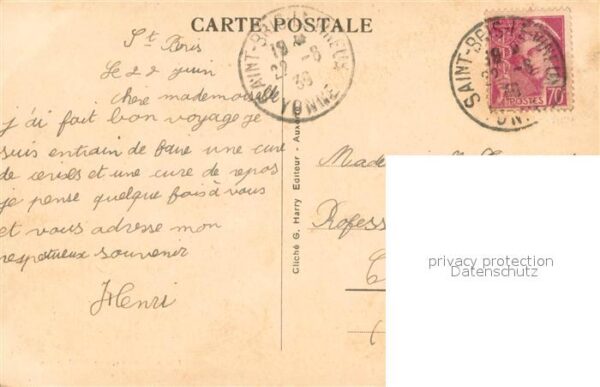 CARTE POSTALE
St Bris
Le 22 juin
chère mademoiselle
j'ai fait bon voyage je
suis entrain de faire une cure
de cerises et une cure de repos
je pense quelque fois à vous
et vous adresse mon
respectueux souvenir
Henri
Cliché G. Harry Editeur - Auxerre
SAINT-BRIS-LE-VINEUX
YONNE
SAINT-BRIS-LE-VINEUX
YONNE
POSTES
70c
Profess
privacy protection
Datenschutz